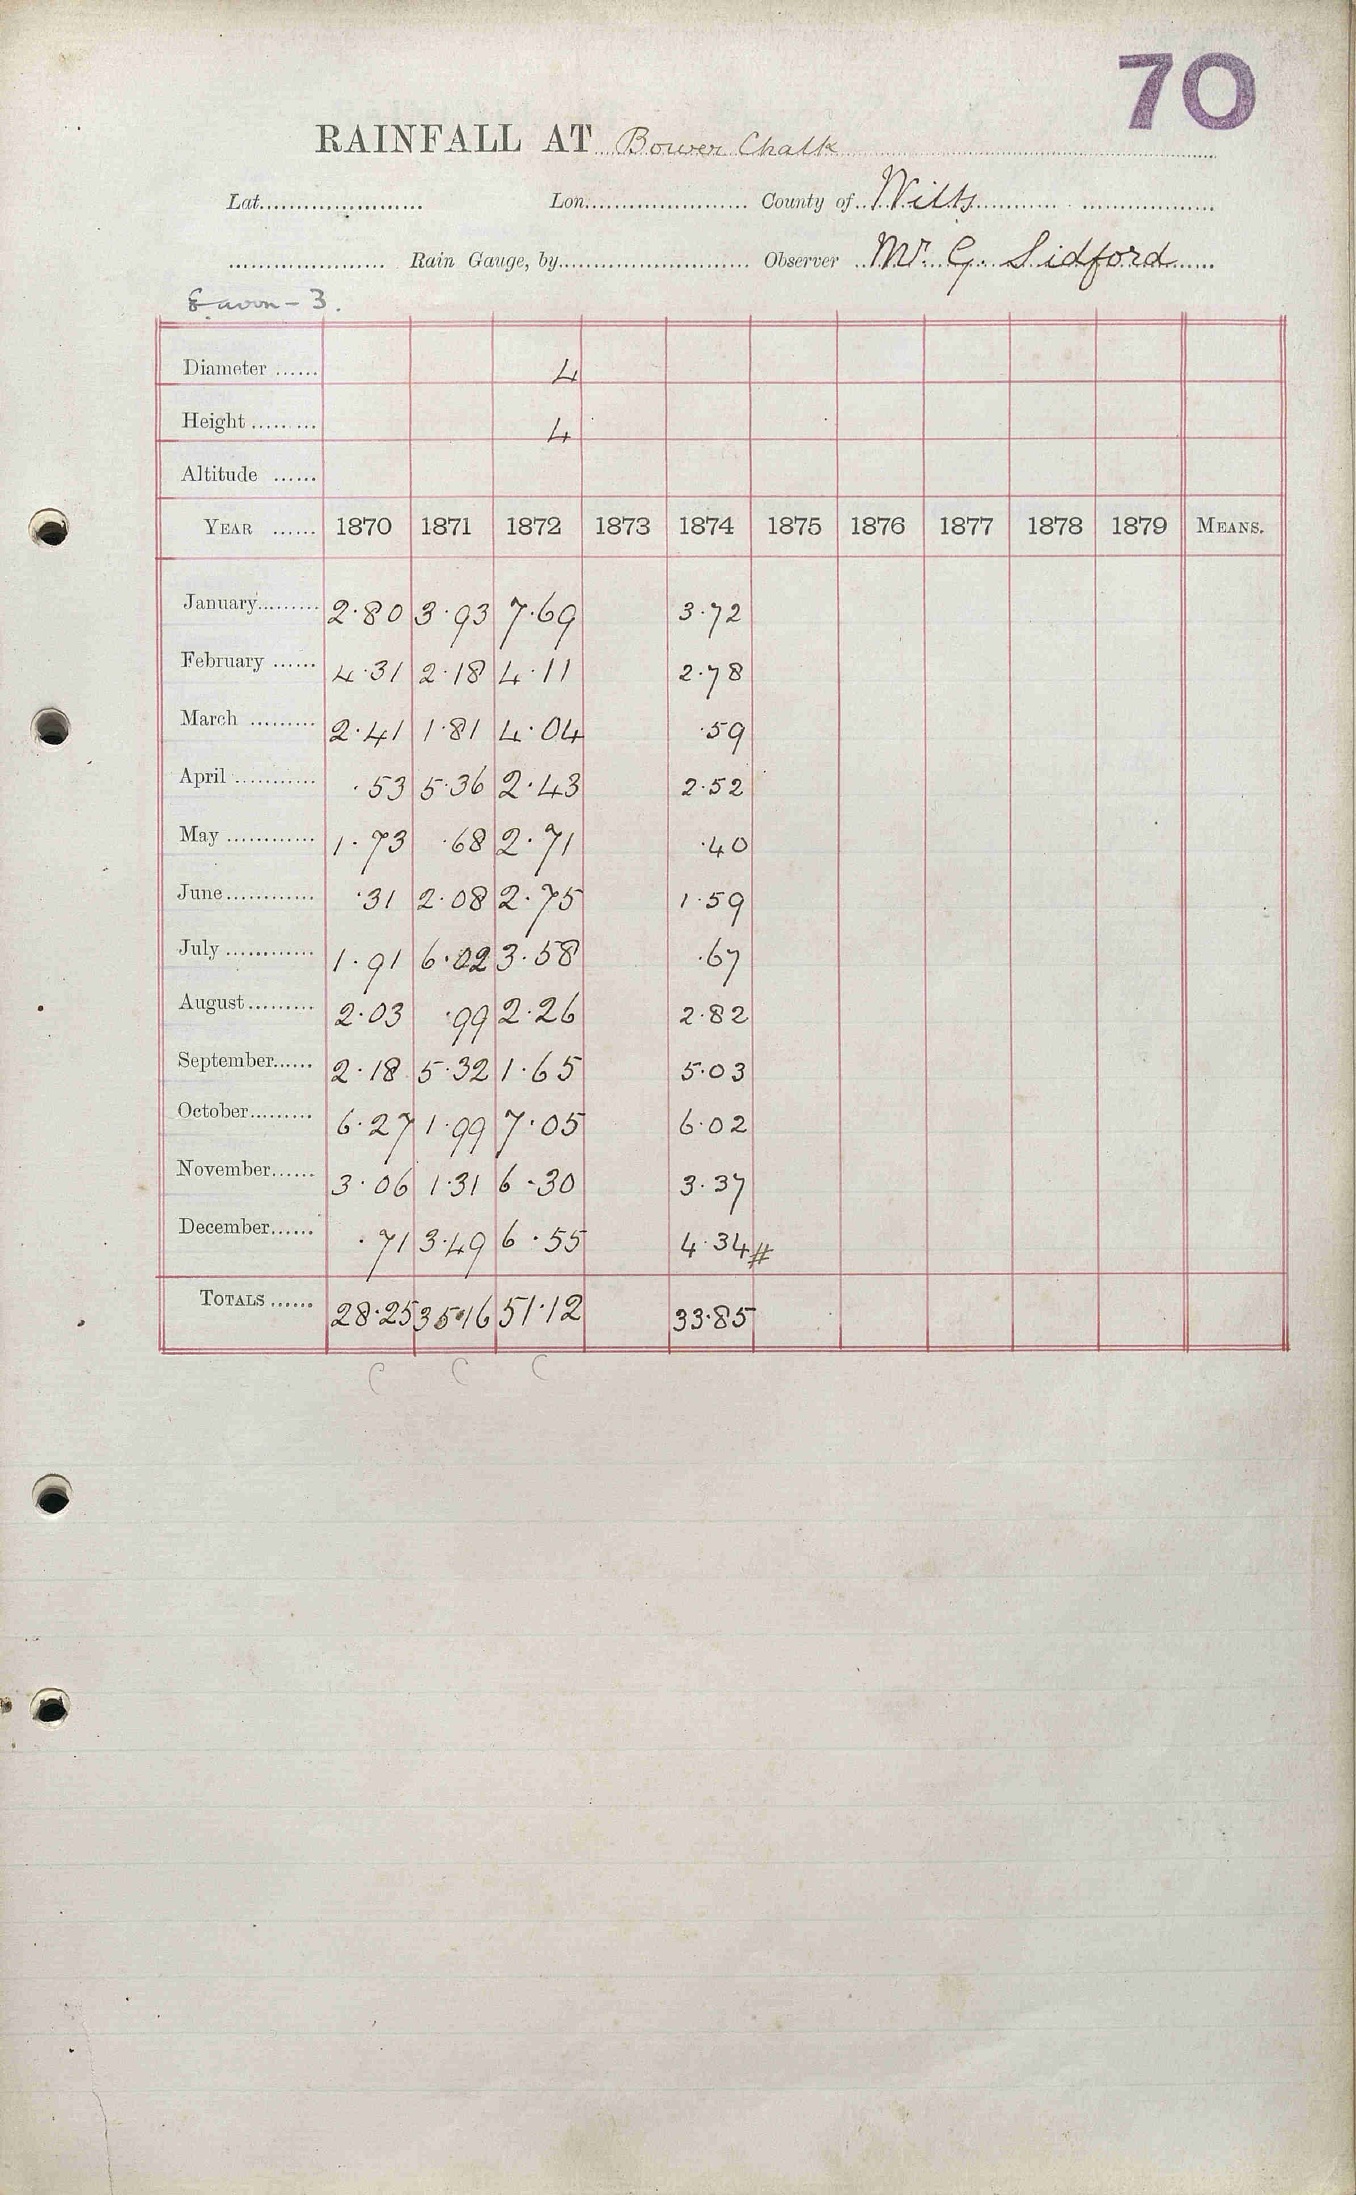 70
RAINFALL AT Bower Chalk
Lat. Lon. County of Wilts
Rain Gauge, by Observer Mr. G. Sidford
E. avon - 3.
Diameter 4
Height 4
Altitude
YEAR 1870 1871 1872 1873 1874 1875 1876 1877 1878 1879 MEANS.
January 2.80 3.93 7.69 3.72
February 4.31 2.18 4.11 2.78
March 2.41 1.81 4.04 .59
April .53 5.36 2.43 2.52
May 1.73 .68 2.71 .40
June .31 2.08 2.75 1.59
July 1.91 6.02 3.58 .67
August 2.03 .99 2.26 2.82
September 2.18 5.32 1.65 5.03
October 6.27 1.99 7.05 6.02
November 3.06 1.31 6.30 3.37
December .71 3.49 6.55 4.34#
TOTALS 28.25 35.16 51.12 33.85
C C C